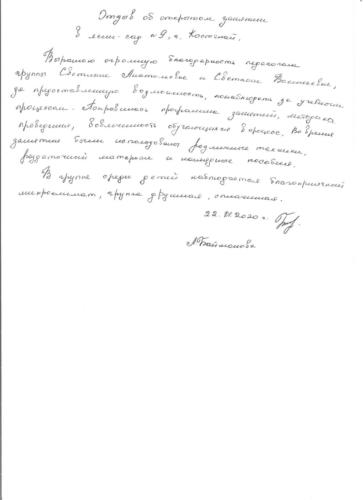 Отзыв об открытом занятии
в ясли-сад №9, г. Костанай.
Выражаю огромную благодарность педагогам
группы Светлане Анатольевне и Светлане Васильевне,
за предоставленную возможность, понаблюдать за учебным
процессом. Понравилась программа занятий, методика
проведения, вовлеченность обучающихся в процесс. Во время
занятия были использованы различные техники,
раздаточный материал и наглядные пособия.
В группе среди детей наблюдается благоприятный
микроклимат, группа дружная, сплоченная.
22. 2020 г.